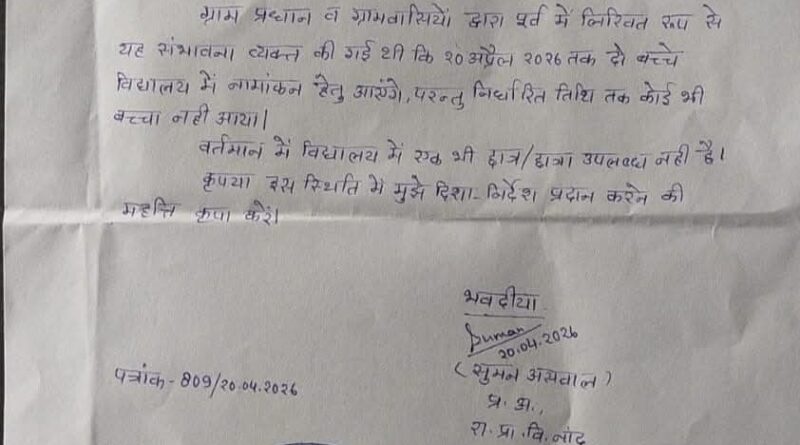 ग्राम प्रधान व ग्रामवासियों द्वारा पूर्व में लिखित रूप से
यह संभावना व्यक्त की गई थी कि २० अप्रैल 2026 तक दो बच्चे
विद्यालय में नामांकन हेतु आएंगे, परन्तु निर्धारित तिथि तक कोई भी
बच्चा नही आया।
वर्तमान में विद्यालय में एक भी छात्र/छात्रा उपलब्ध नही है।
कृपया इस स्थिति में मुझे दिशा-निर्देश प्रदान करने की
महत्ति कृपा करें।
भवदीया
Suman
20.04.2026
(सुमन असवाल)
प्र. अ.,
रा. प्रा. वि. नांद
पत्रांक - 809/20.04.2026